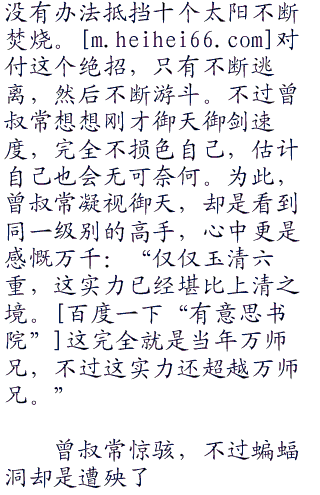 没有办法抵挡十个太阳不断
焚烧。[m.heihei66.com]对
付这个绝招，只有不断逃
离，然后不断游斗。不过曾
叔常想想刚才御天御剑速
度，完全不损色自己，估计
自己也会无可奈何。为此，
曾叔常凝视御天，却是看到
同一级别的高手，心中更是
感慨万千：“仅仅玉清六
重，这实力已经堪比上清之
境。[百度一下“有意思书
院”]这完全就是当年万师
兄，不过这实力还超越万师
兄。”
曾叔常惊骇，不过蝙蝠
洞却是遭殃了